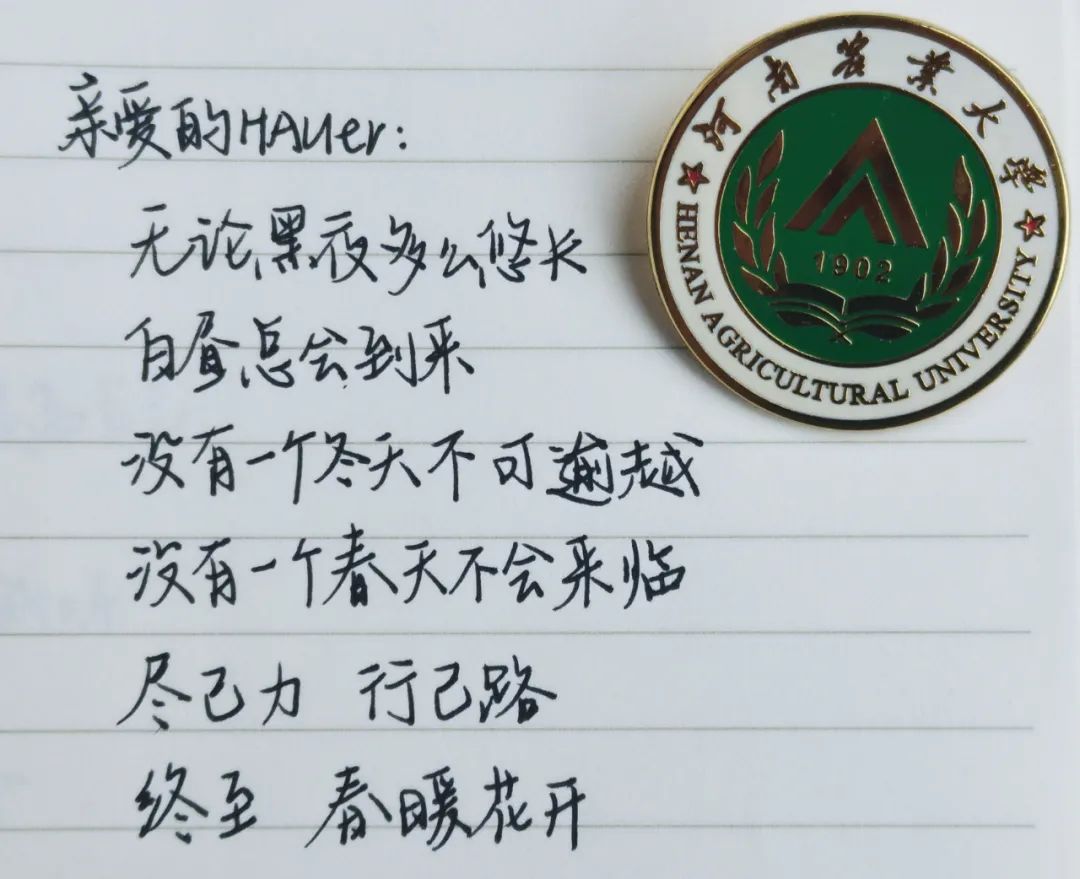 亲爱的HAUer:
无论黑夜多么悠长
白昼总会到来
没有一个冬天不可逾越
没有一个春天不会来临
尽己力 行己路
终至 春暖花开
河南农业大学
1902
HENAN AGRICULTURAL UNIVERSITY